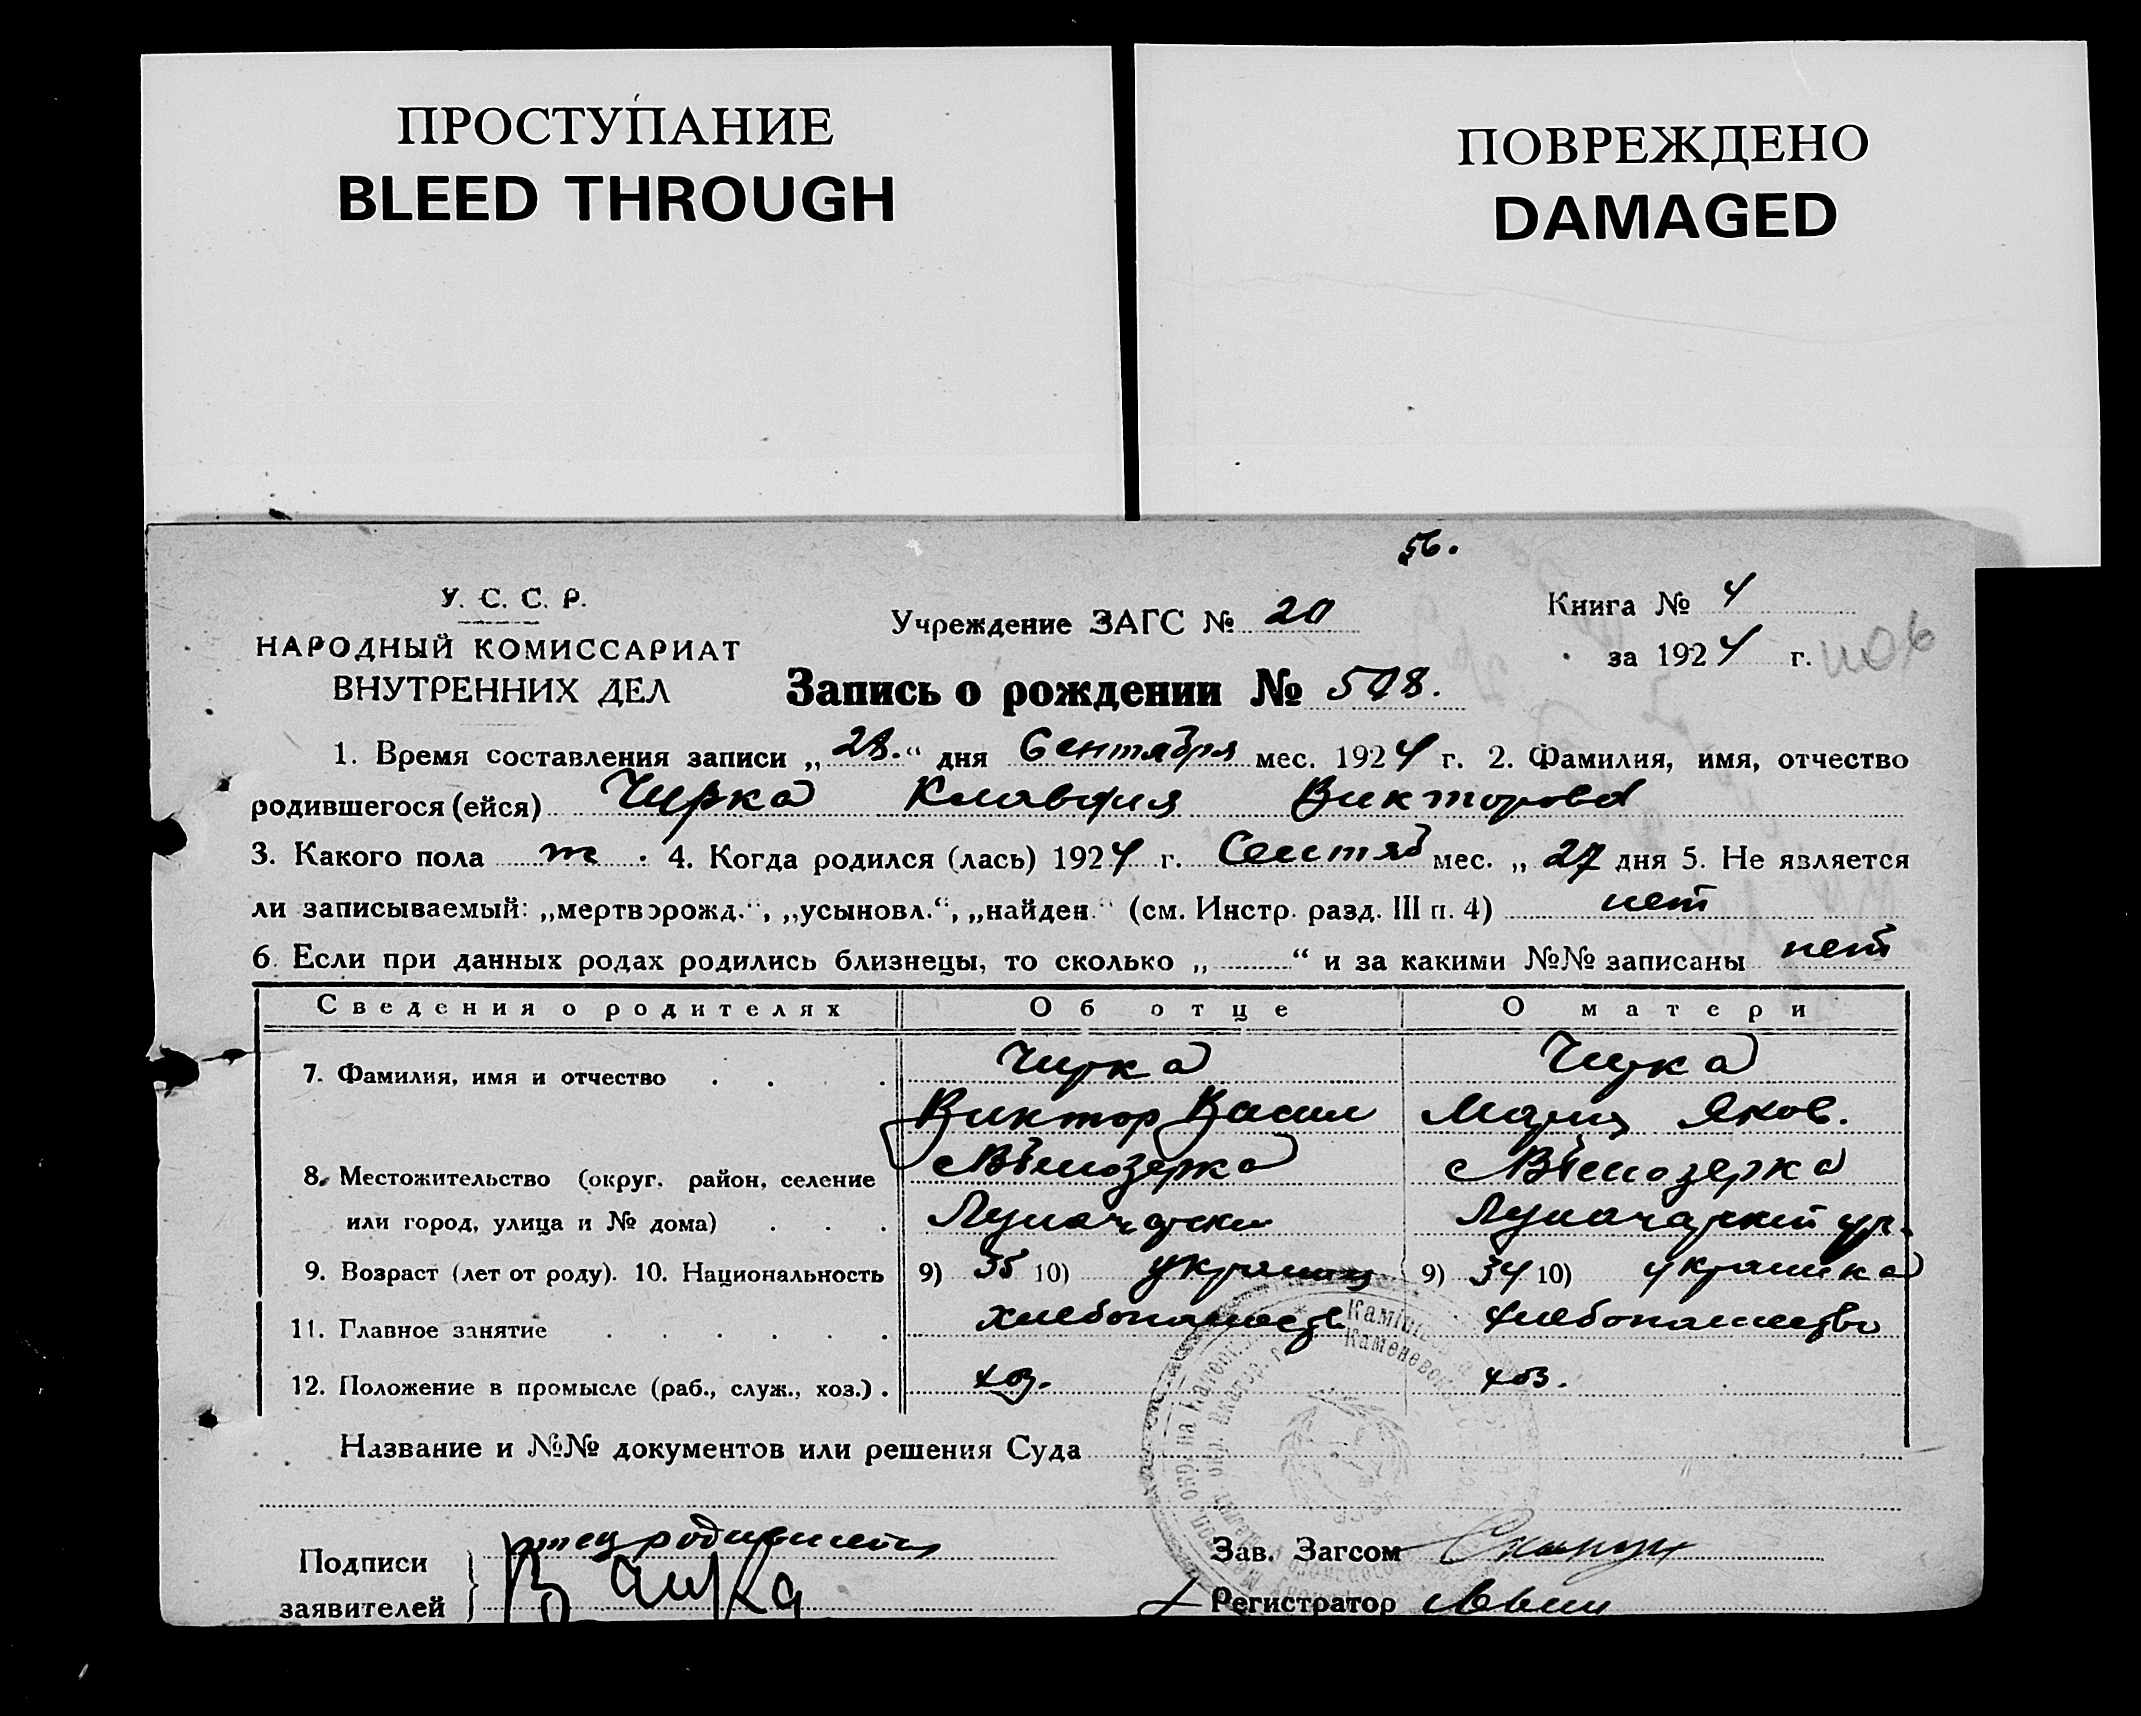 ПРОСТУПАНИЕ
BLEED THROUGH
ПОВРЕЖДЕНО
DAMAGED
56.
У. С. С. Р.
НАРОДНЫЙ КОМИССАРИАТ
ВНУТРЕННИХ ДЕЛ
Учреждение ЗАГС № 20
Книга № 4
за 1924 г.
Запись о рождении № 508.
1. Время составления записи „28.“ дня Сентября мес. 1924 г. 2. Фамилия, имя, отчество
родившегося (ейся) Чирка Клавдия Викторовa
3. Какого пола ж. 4. Когда родился (лась) 1924 г. Сентяб мес. „27 дня 5. Не является
ли записываемый: „мертворожд.“, „усыновл.“, „найден.“ (см. Инстр. разд. III п. 4) нет
6. Если при данных родах родились близнецы, то сколько „ “ и за какими №№ записаны нет
Сведения о родителях Об отце О матери
7. Фамилия, имя и отчество . . . . Чирка Чирка
Виктор Васил Мария Яков.
8. Местожительство (округ, район, селение Белозерка Белозерка
или город, улица и № дома) . . . Луначарски Луначарский
9. Возраст (лет от роду). 10. Национальность 9) 35 10) украинец 9) 34 10) украинка
11. Главное занятие . . . . . . хлебопашеств хлебопашество
12. Положение в промысле (раб., служ., хоз.) . хоз. хоз.
Название и №№ документов или решения Суда
Подписи
заявителей
отец
В Чирка
Зав. Загсом
Регистратор